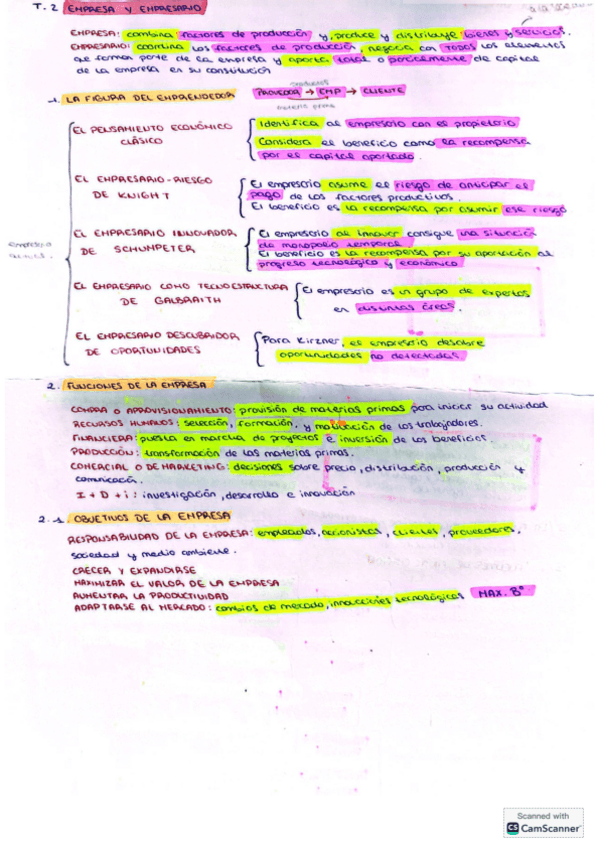 T. 2 EMPRESA Y EMPRESARIO
EMPRESA: combina factores de producción y produce y distribuye bienes y servicios.
EMPRESARIO: coordina los factores de producción, negocia con TODOS los elementos
que forman parte de la empresa y aporta total o parcialmente de capital
de la empresa en su constitución
1. LA FIGURA DEL EMPRENDEDOR
PROVEEDOR → EMP → CLIENTE
materia prima
EL PENSAMIENTO ECONÓMICO
CLÁSICO
Identifica al empresario con el propietario
Considera el beneficio como la recompensa
por el capital aportado.
EL EMPRESARIO-RIESGO
DE KNIGHT
El empresario asume el riesgo de anticipar el
pago de los factores productivos.
El beneficio es la recompensa por asumir ese riesgo
EL EMPRESARIO INNOVADOR
DE SCHUMPETER
El empresario al innovar consigue una situación
de monopolio temporal
El beneficio es la recompensa por su aportación al
progreso tecnológico y económico
empresario
EL EMPRESARIO COMO TECNOESTRUCTURA
DE GALBRAITH
El empresario es un grupo de expertos
en distintas áreas.
EL EMPRESARIO DESCUBRIDOR
DE OPORTUNIDADES
Para Kirzner, el empresario descubre
oportunidades no detectadas
2. FUNCIONES DE LA EMPRESA
COMPRA O APROVISIONAMIENTO: provisión de materias primas para iniciar su actividad
RECURSOS HUMANOS: selección, formación, y motivación de los trabajadores.
FINANCIERA: puesta en marcha de proyectos e inversión de los beneficios.
PRODUCCIÓN: transformación de las materias primas.
COMERCIAL O DE MARKETING: decisiones sobre precio, distribución, producción y
comunicación.
I + D + i: investigación, desarrollo e innovación
2.1. OBJETIVOS DE LA EMPRESA
RESPONSABILIDAD DE LA EMPRESA: empleados, accionistas, clientes, proveedores,
sociedad y medio ambiente.
CRECER Y EXPANDIRSE
MAXIMIZAR EL VALOR DE LA EMPRESA
AUMENTAR LA PRODUCTIVIDAD
ADAPTARSE AL MERCADO: cambios de mercado, innovaciones tecnológicas MAX. Bº
Scanned with
CS CamScanner